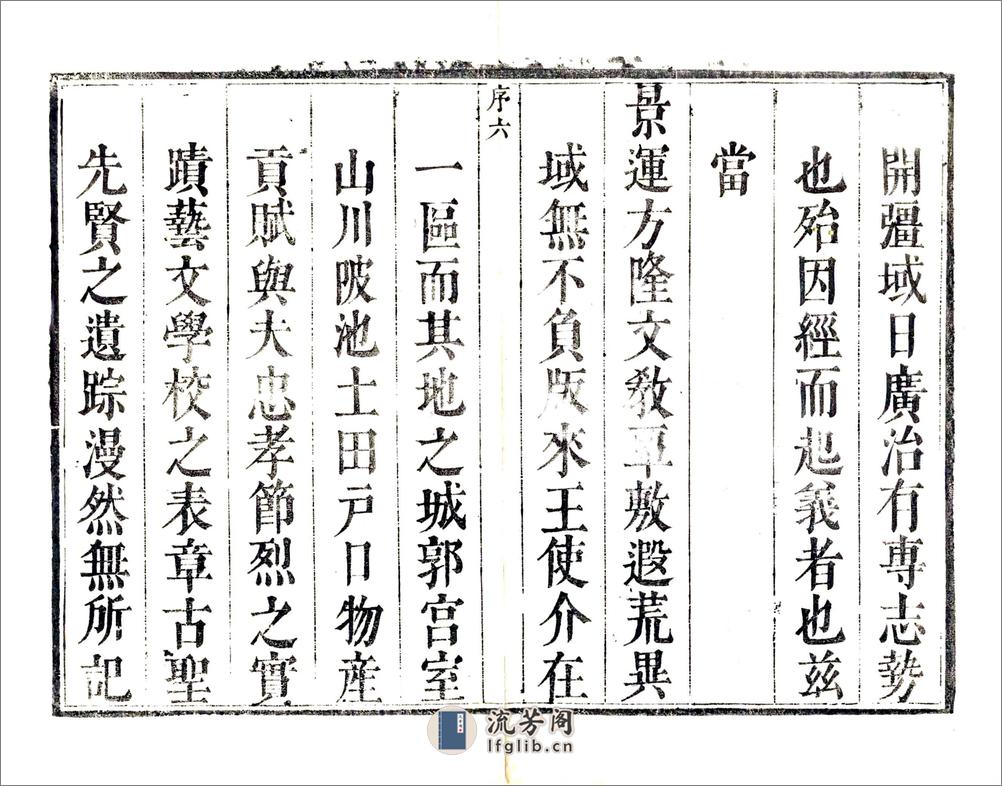 開疆域日廣治有專志勢
也殆因經而起義者也兹
當
景運方隆文教覃敷遐荒異
域無不負版來王使介在
序六
一區而其地之城郭宮室
山川陂池土田戸口物産
貢賦與夫忠孝節烈之實
蹟藝文學校之表章古聖
先賢之遺踪漫然無所記
流芳阁
lfglib.cn